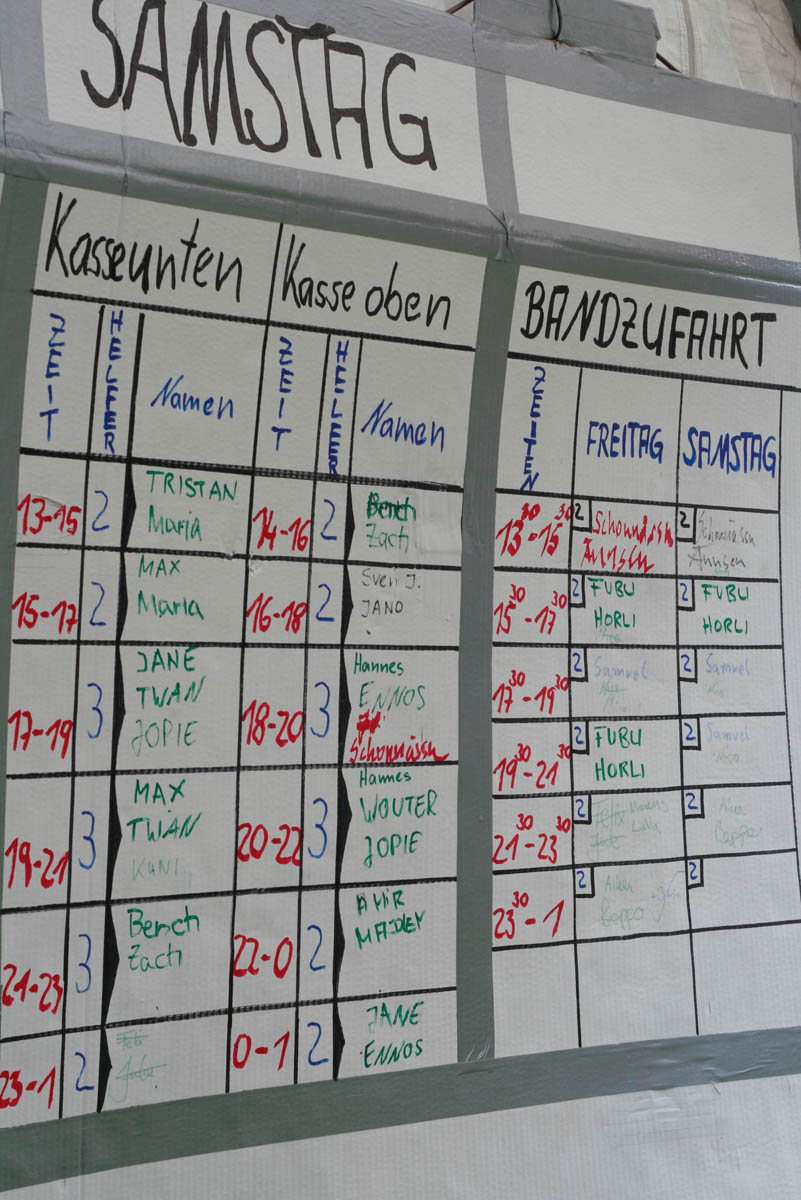 SAMSTAG
Kasse unten
ZEIT HELFER Namen
13-15 2 TRISTAN
Maria
15-17 2 MAX
Maria
17-19 3 JANE
TWAN
JOPIE
19-21 3 MAX
TWAN
KUNI
21-23 3 Bersch
Zach
23-1 2 Felix
Kasse oben
ZEIT HELFER Namen
14-16 2 Bersch
Zach
16-18 2 Sven J.
JANO
18-20 3 Hannes
ENNOS
Schonnässn
20-22 3 Hannes
WOUTER
JOPIE
22-0 2
0-1 2 JANE
ENNOS
BANDZUFAHRT
ZEITEN FREITAG SAMSTAG
13 30 - 15 30 2 Schonnässn 2 Schonnässn
Ännsen Ännsen
15 30 - 17 30 2 FUBU 2 FUBU
HORLI HORLI
17 30 - 19 30 2 Samuel 2 Samuel
19 30 - 21 30 2 FUBU 2 Samuel
HORLI
21 30 - 23 30 2 Felix 2
Lulla
23 30 - 1 2 2
Beppo